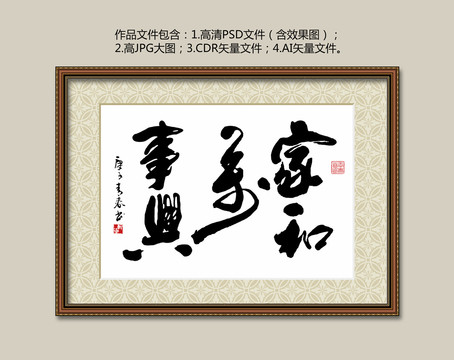 作品文件包含：1.高清PSD文件（含效果图）；
2.高JPG大图；3.CDR矢量文件；4.AI矢量文件。
家和
万
事興